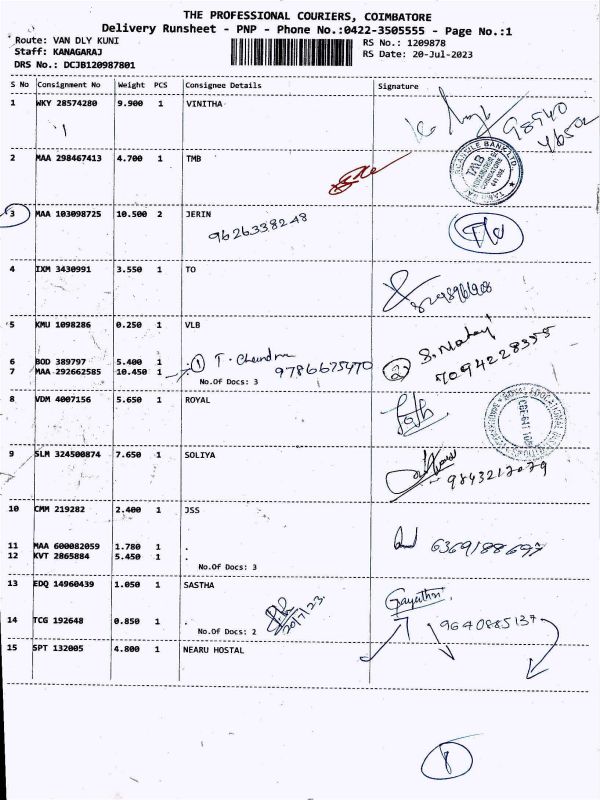 THE PROFESSIONAL COURIERS, COIMBATORE
Delivery Runsheet - PNP - Phone No.:0422-3505555 - Page No.:1
Route: VAN DLY KUNI
RS No.: 1209878
Staff: KANAGARAJ
RS Date: 20-Jul-2023
DRS No.: DCJB120987801
S No Consignment No Weight PCS Consignee Details Signature
1 WKY 28574280 9.900 1 VINITHA
98940
2 MAA 298467413 4.700 1 TMB
TMB
COIMBATORE
3 MAA 103098725 10.500 2 JERIN
9626338248
4 IXM 3430991 3.550 1 TO
5 KMU 1098286 0.250 1 VLB
6 BOD 389797 5.400 1 .
7 MAA 292662585 10.450 1
1 T. Chandra
9786675470
2
7094228355
No.Of Docs: 3
8 VDM 4007156 5.650 1 ROYAL
9 SLM 324500874 7.650 1 SOLIYA
9843217079
10 CMM 219282 2.400 1 JSS
11 MAA 600082059 1.780 1 .
12 KVT 2865884 5.450 1 .
6369188697
No.Of Docs: 3
13 EDQ 14960439 1.050 1 SASTHA
20/7/23.
Gayathri
14 TCG 192648 0.850 1 .
9640885137
No.Of Docs: 2
15 SPT 132005 4.800 1 NEARU HOSTAL
8